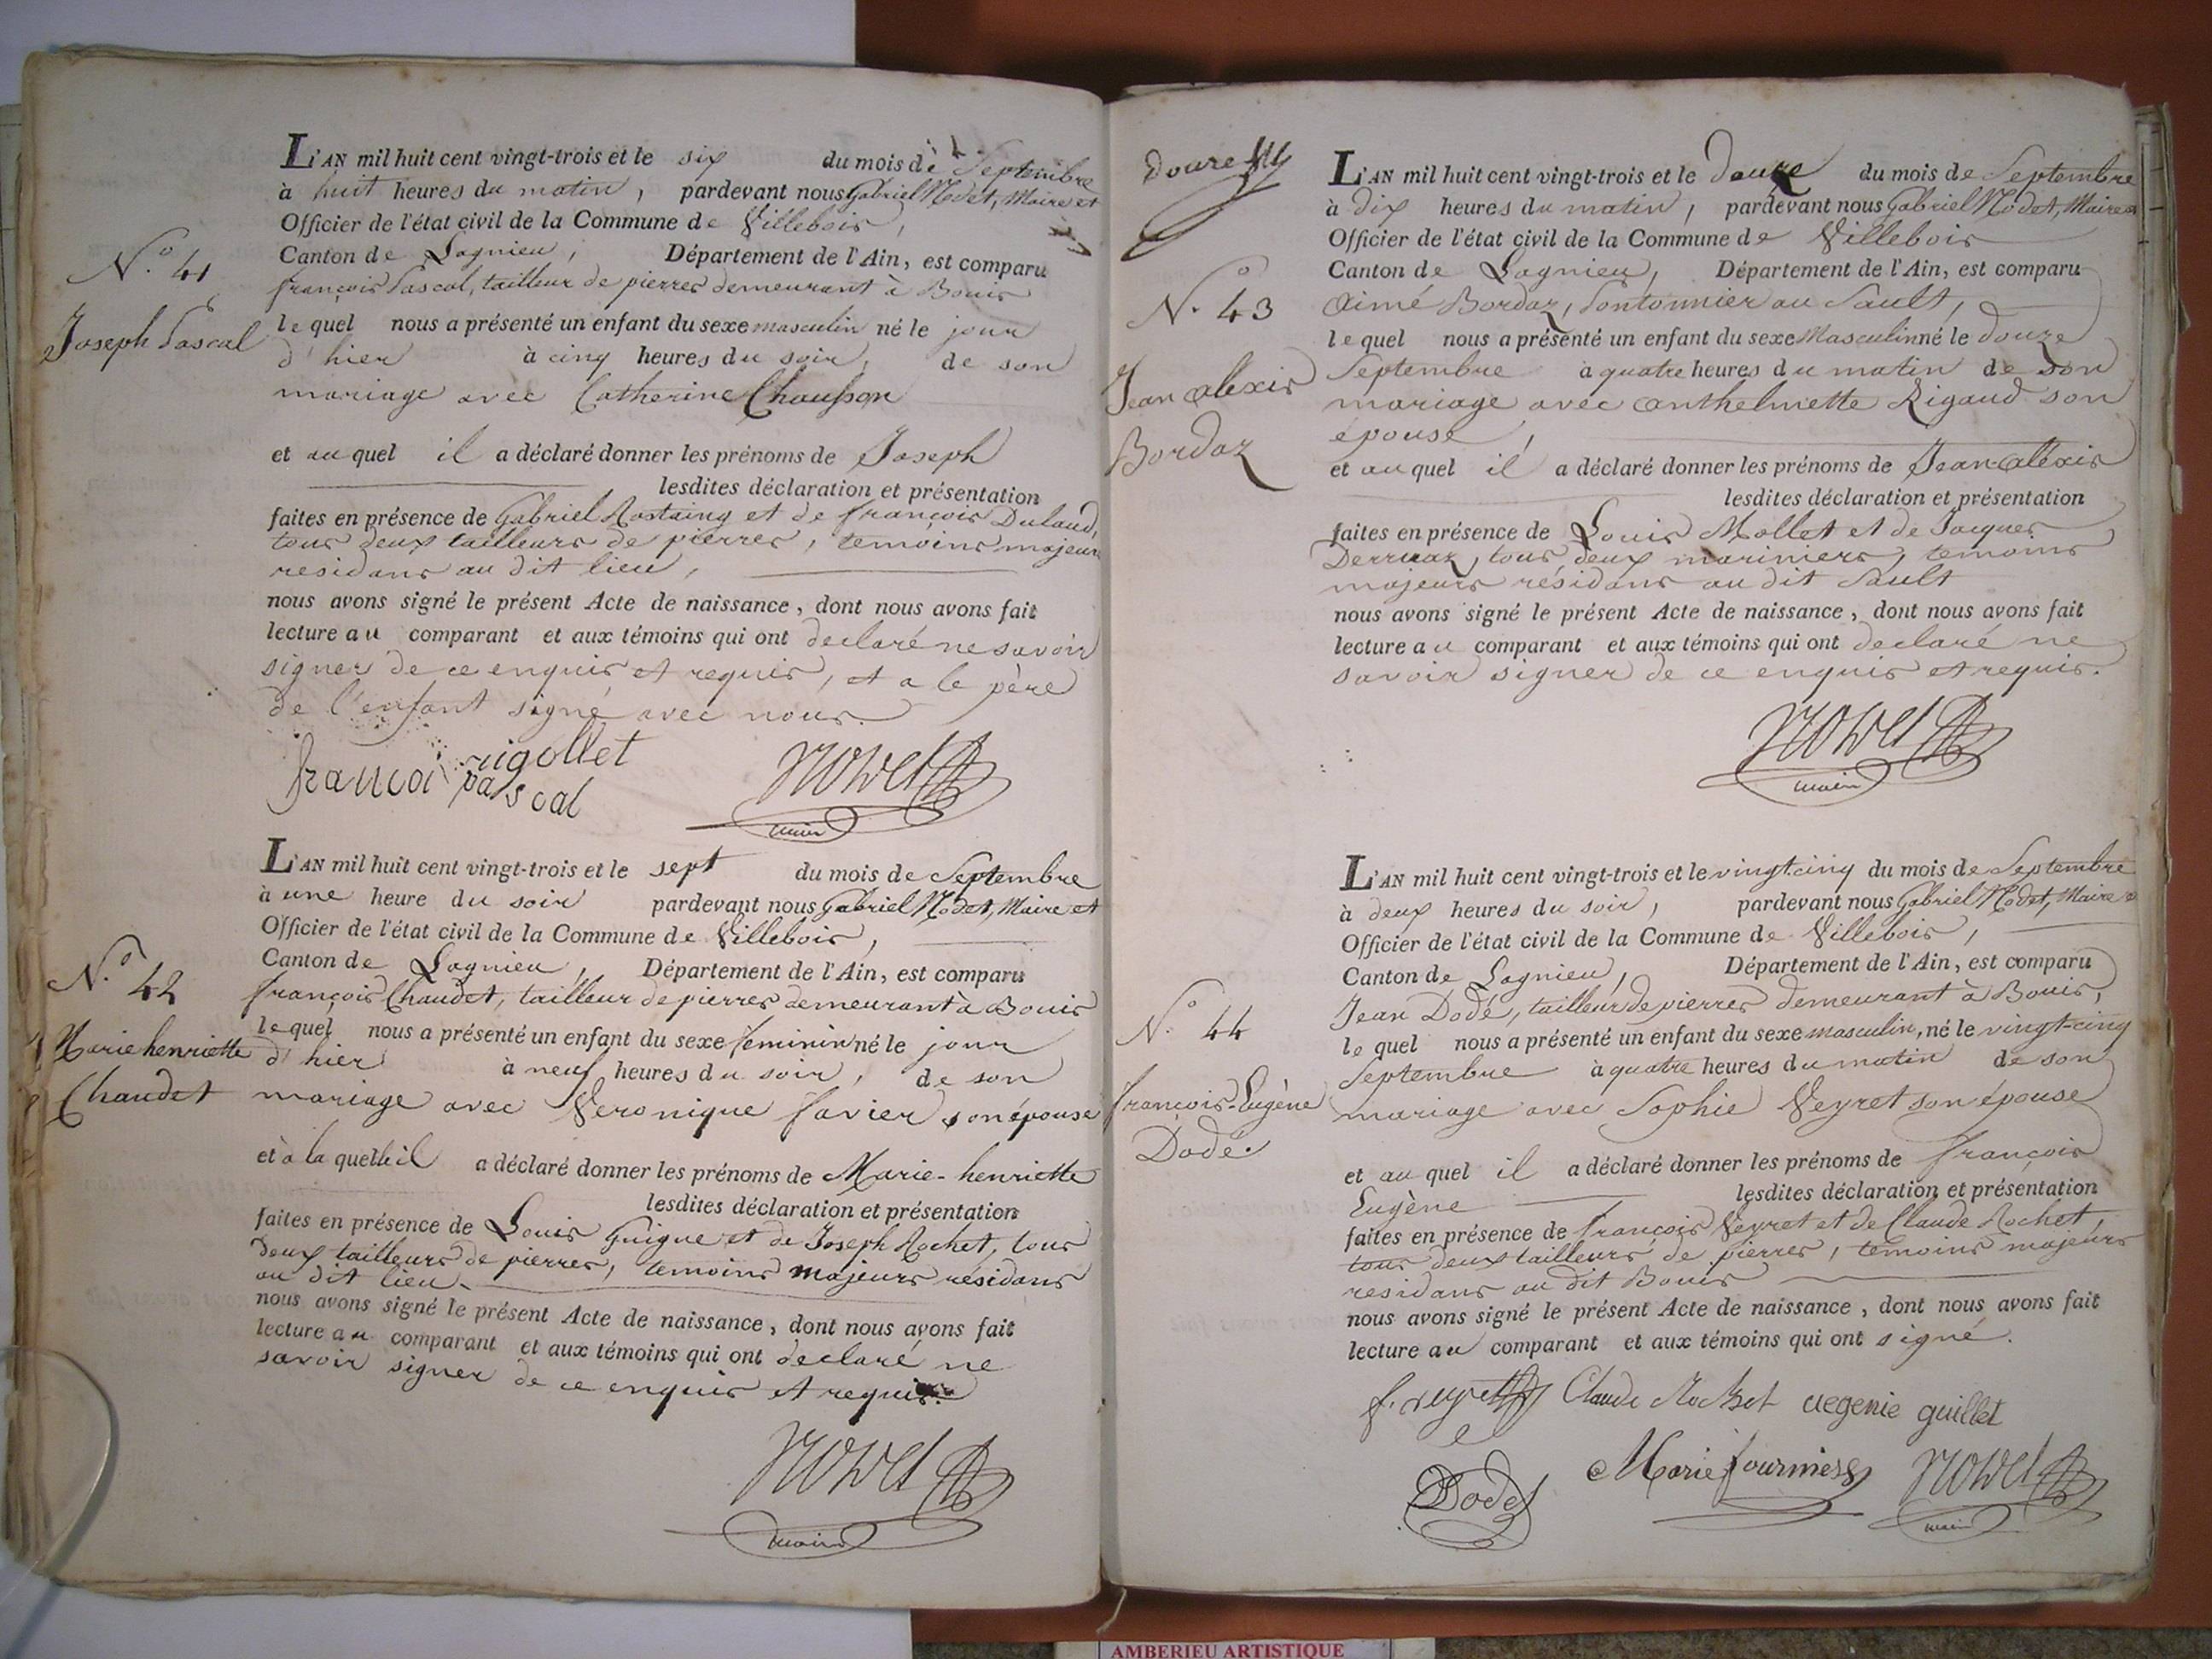 L'AN mil huit cent vingt-trois et le six du mois de Septembre
à huit heures du matin, pardevant nous Gabriel Nodet, Maire et
Officier de l'état civil de la Commune de Villebois,
Canton de Lagnieu, Département de l'Ain, est comparu
françois Pascal, tailleur de pierres demeurant à Bouis
lequel nous a présenté un enfant du sexe masculin né le jour
d'hier à cinq heures du soir, de son
mariage avec Catherine Chausson
et au quel il a déclaré donner les prénoms de Joseph
lesdites déclaration et présentation
faites en présence de Gabriel Rostaing et de françois Dulaud,
tous deux tailleurs de pierres, temoins majeurs
residans au dit lieu,
nous avons signé le présent Acte de naissance, dont nous avons fait
lecture au comparant et aux témoins qui ont declaré ne savoir
signer de ce enquis et requis, et a le père
de l'enfant signé avec nous.
N.o 41
Joseph Pascal
rigollet
françoi pascal
NODET
maire
L'AN mil huit cent vingt-trois et le sept du mois de Septembre
à une heure du soir pardevant nous Gabriel Nodet, Maire et
Officier de l'état civil de la Commune de Villebois,
Canton de Lagnieu, Département de l'Ain, est comparu
françois Chaudet, tailleur de pierres demeurant à Bouis
lequel nous a présenté un enfant du sexe feminin né le jour
d'hier à neuf heures du soir, de son
mariage avec Veronique favier son épouse
et à la quelle il a déclaré donner les prénoms de Marie-henriette
lesdites déclaration et présentation
faites en présence de Louis Guigue et de Joseph Rochet, tous
deux tailleurs de pierres, temoins majeurs résidans
au dit lieu.
nous avons signé le présent Acte de naissance, dont nous avons fait
lecture au comparant et aux témoins qui ont declaré ne
savoir signer de ce enquis et requis.
N.o 42
Marie henriette
Chaudet
NODET
maire
L'AN mil huit cent vingt-trois et le douze du mois de Septembre
à dix heures du matin, pardevant nous Gabriel Nodet, Maire et
Officier de l'état civil de la Commune de Villebois
Canton de Lagnieu, Département de l'Ain, est comparu
Aimé Bordaz, Pontonnier au Sault,
lequel nous a présenté un enfant du sexe Masculin né le douze
Septembre à quatre heures du matin de son
mariage avec Anthelmette Rigaud son
épouse,
et au quel il a déclaré donner les prénoms de Jean-Alexis
lesdites déclaration et présentation
faites en présence de Louis Mollet et de Jacques
Derruaz, tous deux mariniers, temoins
majeurs résidans au dit Sault
nous avons signé le présent Acte de naissance, dont nous avons fait
lecture au comparant et aux témoins qui ont declaré ne
savoir signer de ce enquis et requis.
douze
N.o 43
Jean Alexis
Bordaz
NODET
maire
L'AN mil huit cent vingt-trois et le vingt-cinq du mois de Septembre
à deux heures du soir, pardevant nous Gabriel Nodet, Maire et
Officier de l'état civil de la Commune de Villebois,
Canton de Lagnieu, Département de l'Ain, est comparu
Jean Dodé, tailleur de pierres demeurant à Bouis,
lequel nous a présenté un enfant du sexe masculin, né le vingt-cinq
Septembre à quatre heures du matin de son
mariage avec Sophie Veyret son épouse
et au quel il a déclaré donner les prénoms de françois
Eugène lesdites déclaration et présentation
faites en présence de françois Veyret et de Claude Rochet,
tous deux tailleurs de pierres, témoins majeurs
residans au dit Bouis
nous avons signé le présent Acte de naissance, dont nous avons fait
lecture au comparant et aux témoins qui ont signé.
N.o 44
françois-Eugène
Dodé.
f. veyret Claude Rochet uegenie guillet
Dode Marie fournier NODET
maire
AMBERIEU ARTISTIQUE